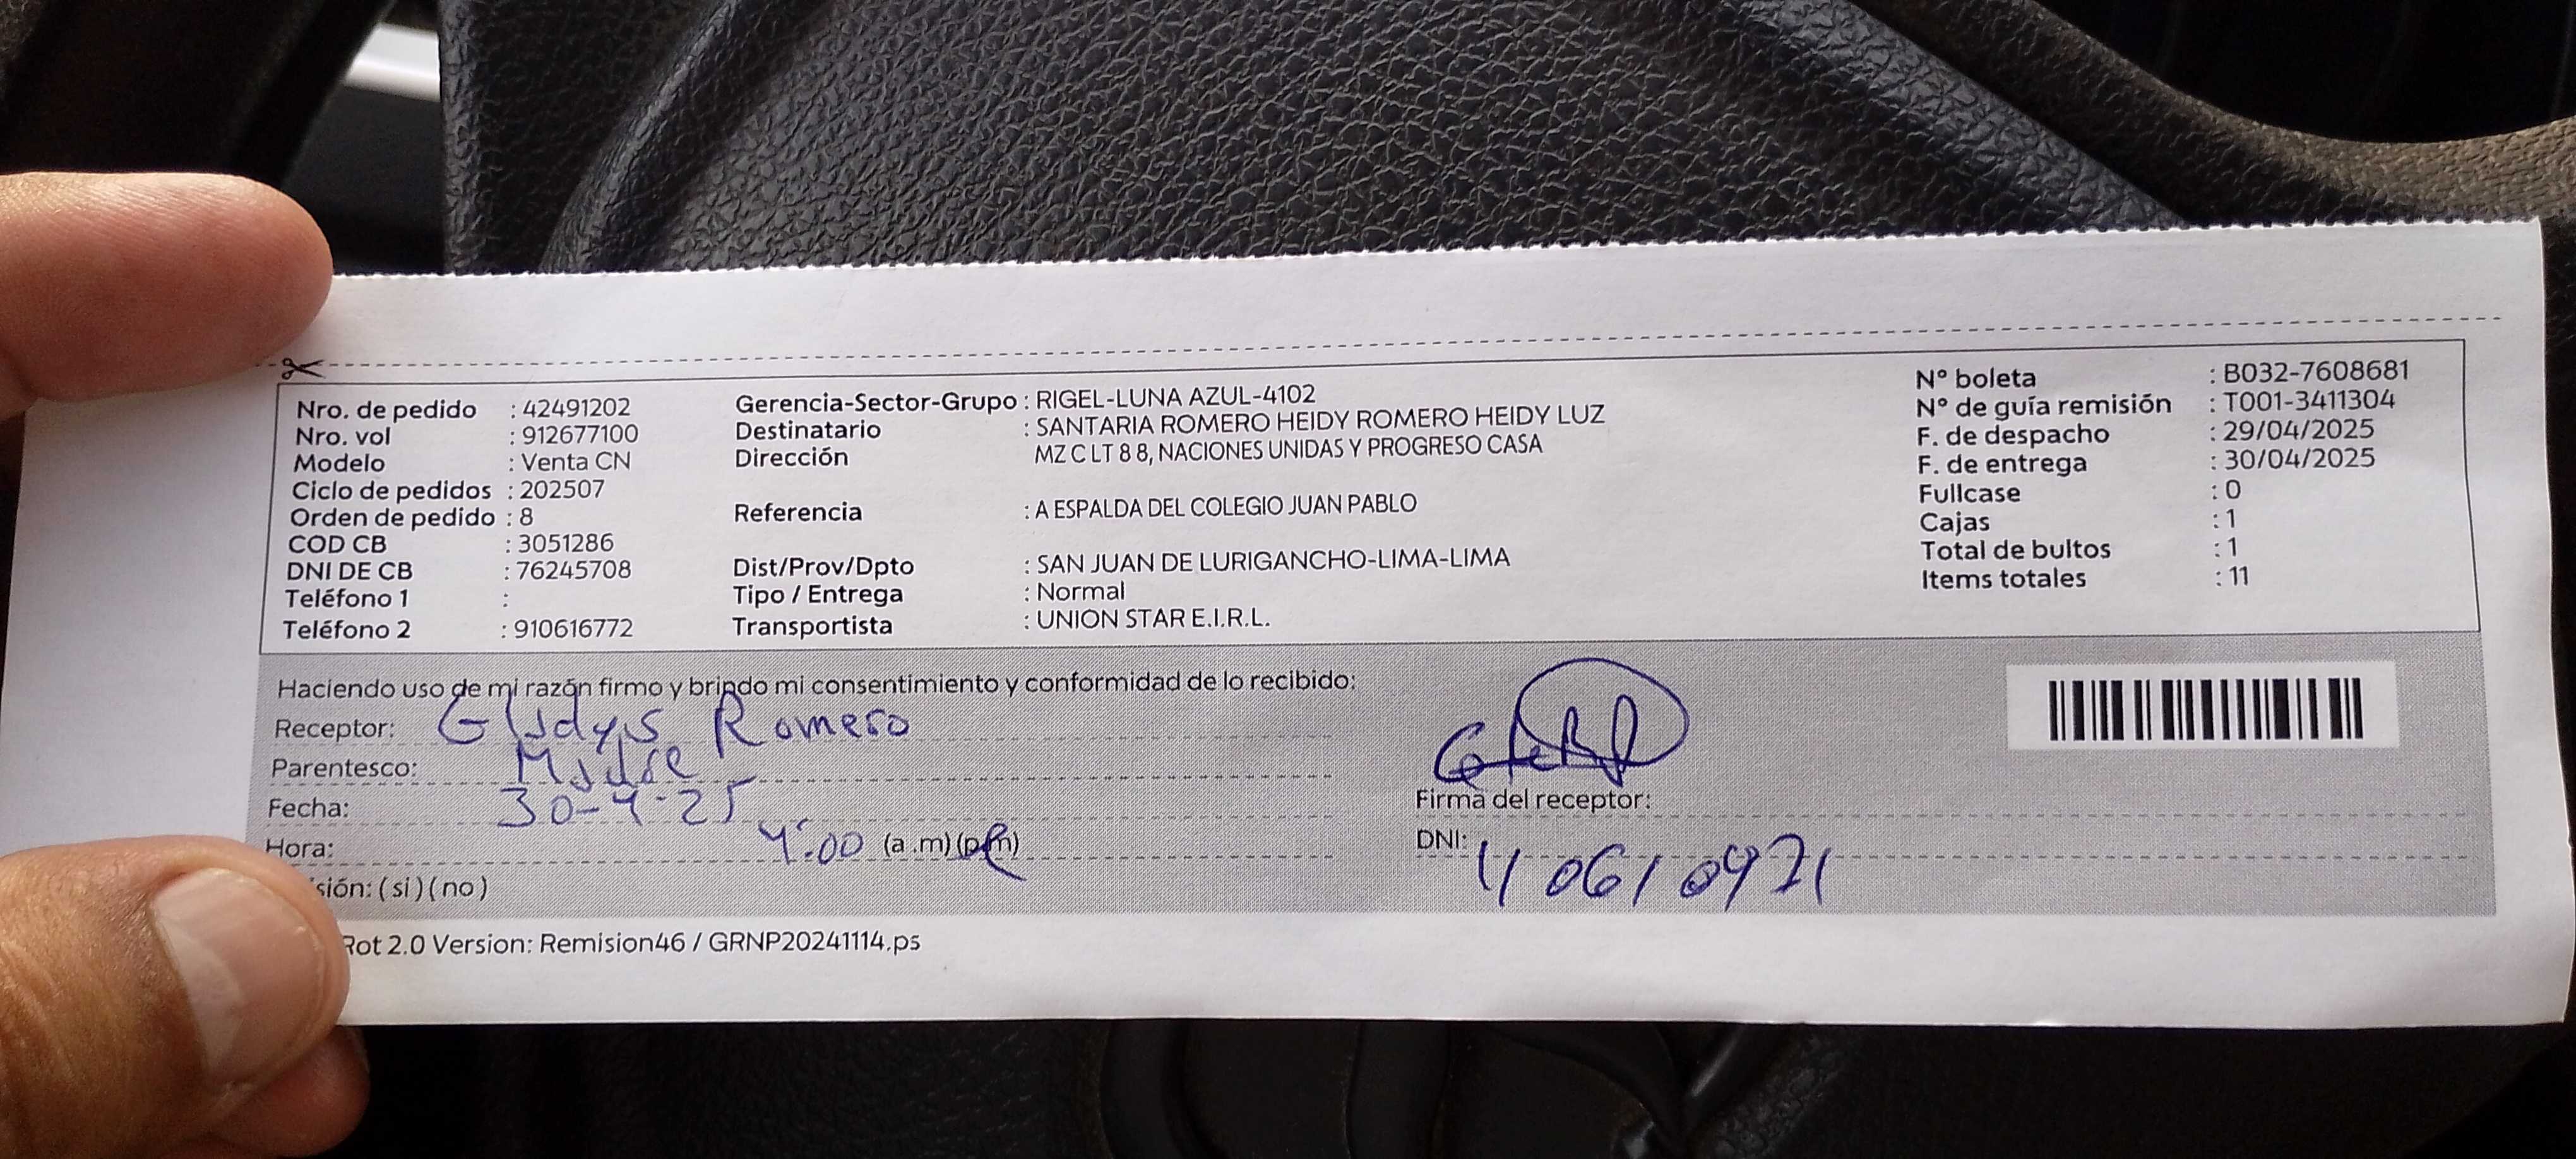 Nro. de pedido : 42491202
Nro. vol : 912677100
Modelo : Venta CN
Ciclo de pedidos : 202507
Orden de pedido : 8
COD CB : 3051286
DNI DE CB : 76245708
Teléfono 1 :
Teléfono 2 : 910616772
Gerencia-Sector-Grupo : RIGEL-LUNA AZUL-4102
Destinatario : SANTARIA ROMERO HEIDY ROMERO HEIDY LUZ
Dirección MZ C LT 8 8, NACIONES UNIDAS Y PROGRESO CASA
Referencia : A ESPALDA DEL COLEGIO JUAN PABLO
Dist/Prov/Dpto : SAN JUAN DE LURIGANCHO-LIMA-LIMA
Tipo / Entrega : Normal
Transportista : UNION STAR E.I.R.L.
N° boleta : B032-7608681
N° de guía remisión : T001-3411304
F. de despacho : 29/04/2025
F. de entrega : 30/04/2025
Fullcase : 0
Cajas : 1
Total de bultos : 1
Items totales : 11
Haciendo uso de mi razón firmo y brindo mi consentimiento y conformidad de lo recibido:
Receptor: Gladys Romero
Parentesco: Madre
Fecha: 30-4-25
Hora: 4:00 (a.m) (p.m)
sión: ( si ) ( no )
Firma del receptor:
DNI:
Rot 2.0 Version: Remision46 / GRNP20241114.ps